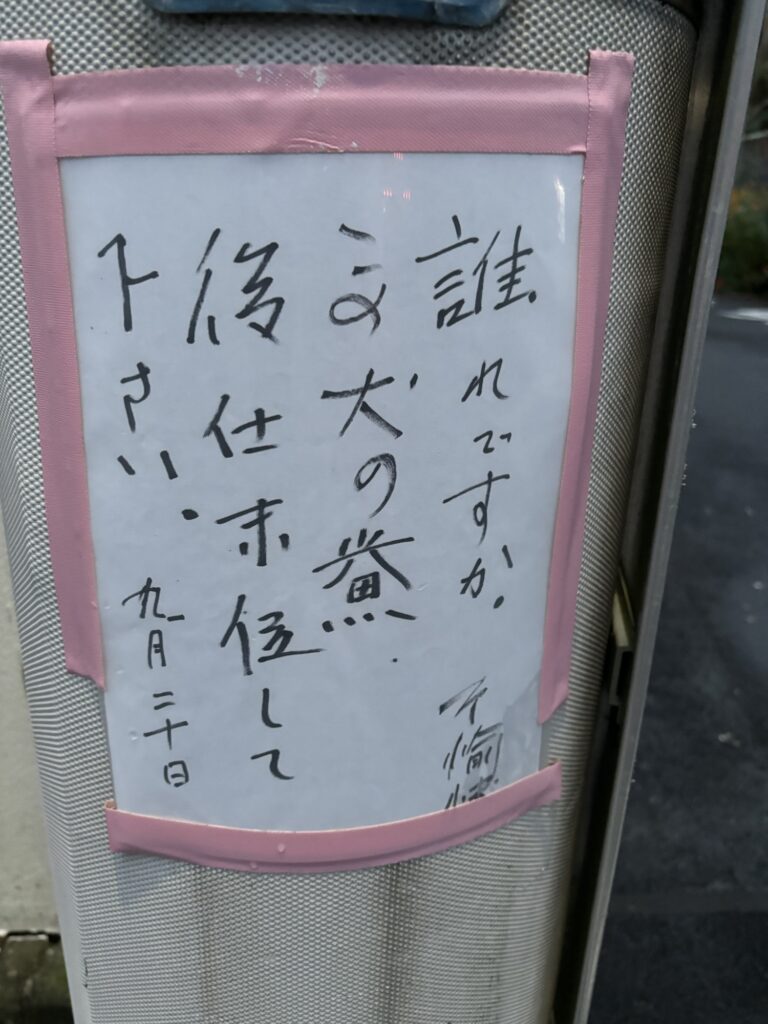 誰れですか. 不愉
この犬の糞.
後仕末位して
下さい. 九月二十日